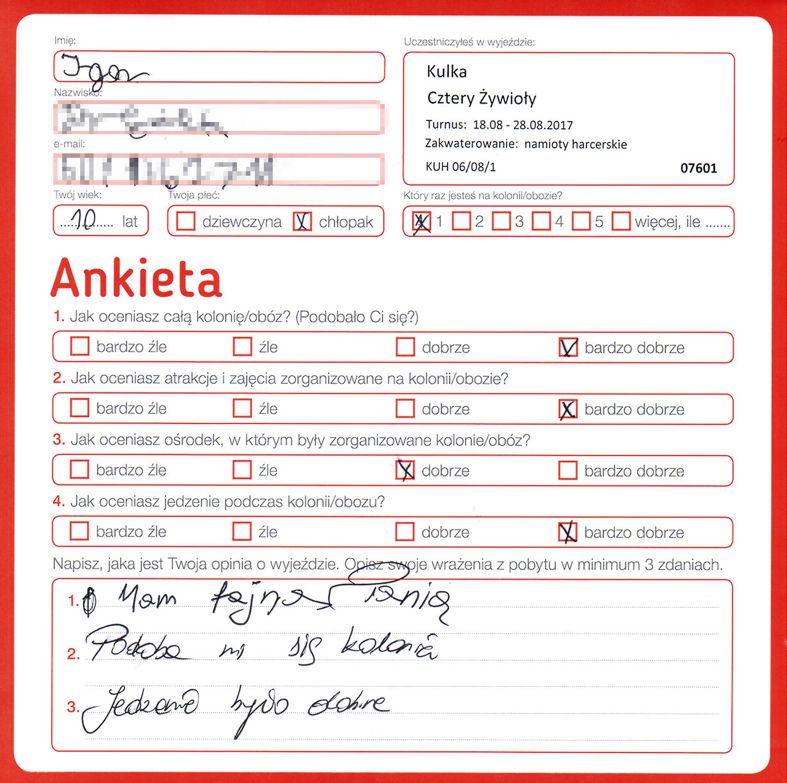 Imię:
Uczestniczyłeś w wyjeździe:
Igor
Kulka
Nazwisko:
Cztery Żywioły
Turnus: 18.08 - 28.08.2017
e-mail:
Zakwaterowanie: namioty harcerskie
KUH 06/08/1 07601
Twój wiek: Twoja płeć: Który raz jesteś na kolonii/obozie?
10 lat dziewczyna X chłopak X 1 2 3 4 5 więcej, ile .......
Ankieta
1. Jak oceniasz całą kolonię/obóz? (Podobało Ci się?)
bardzo źle źle dobrze bardzo dobrze
2. Jak oceniasz atrakcje i zajęcia zorganizowane na kolonii/obozie?
bardzo źle źle dobrze X bardzo dobrze
3. Jak oceniasz ośrodek, w którym były zorganizowane kolonie/obóz?
bardzo źle źle X dobrze bardzo dobrze
4. Jak oceniasz jedzenie podczas kolonii/obozu?
bardzo źle źle dobrze X bardzo dobrze
Napisz, jaka jest Twoja opinia o wyjeździe. Opisz swoje wrażenia z pobytu w minimum 3 zdaniach.
1. Mam fajną Panią
2. Podoba mi się kolonia
3. Jedzenie było dobre